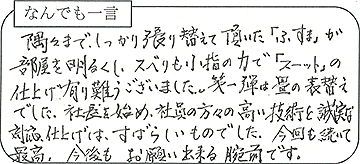 なんでも一言
隅々まで、しっかり張り替えて頂いた「ふすま」が
部屋を明るくし、スベりも小指の力で「スーット」の
仕上げ有り難うございました。第一弾は畳の表替え
でした。社長を始め、社員の方々の高い技術と誠実
仕上げは、すばらしいものでした。今回も続いて
最高。今後もお願い出来る腕前です。